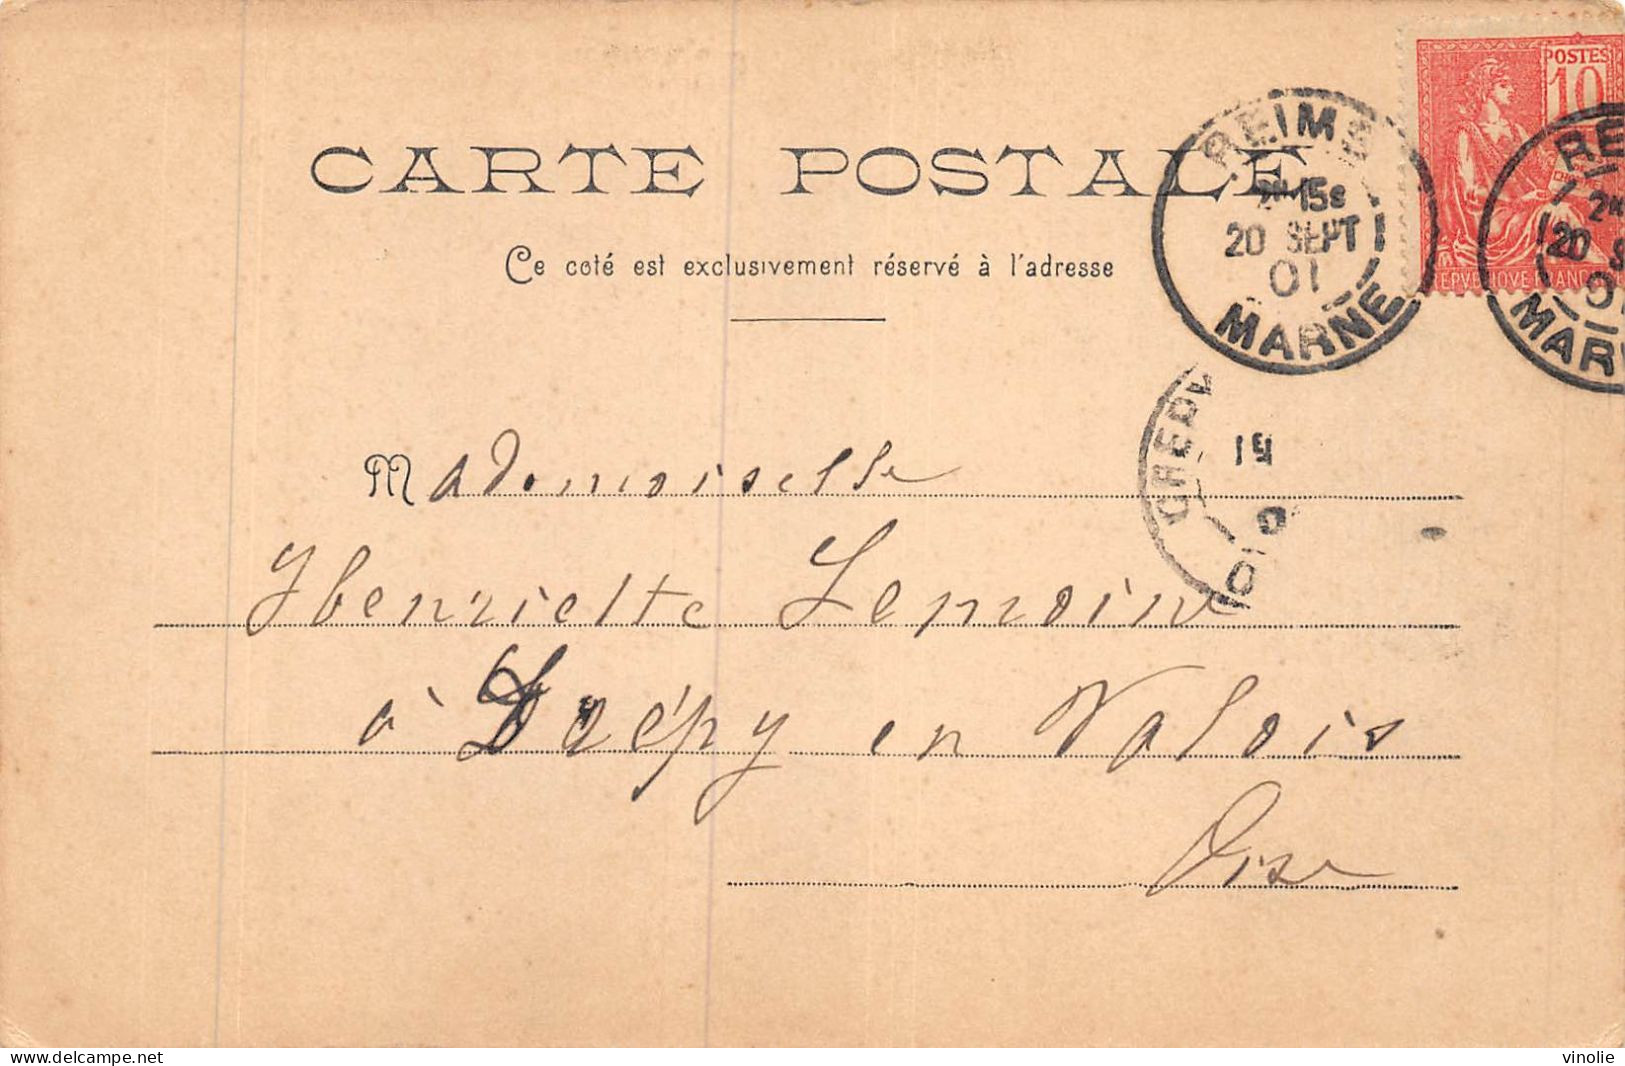 CARTE POSTALE
Ce coté est exclusivement réservé à l'adresse
POSTES
10
REPVBLIQVE FRANC
REIMS
15s
20 SEPT
01
MARNE
RE
20 S
01
MAR
CREPY
15
Mademoiselle
Henriette Lemoine
à Crépy en Valois
Oise
www.delcampe.net
vinolie